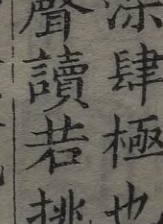 深肆極也
聲讀若挑